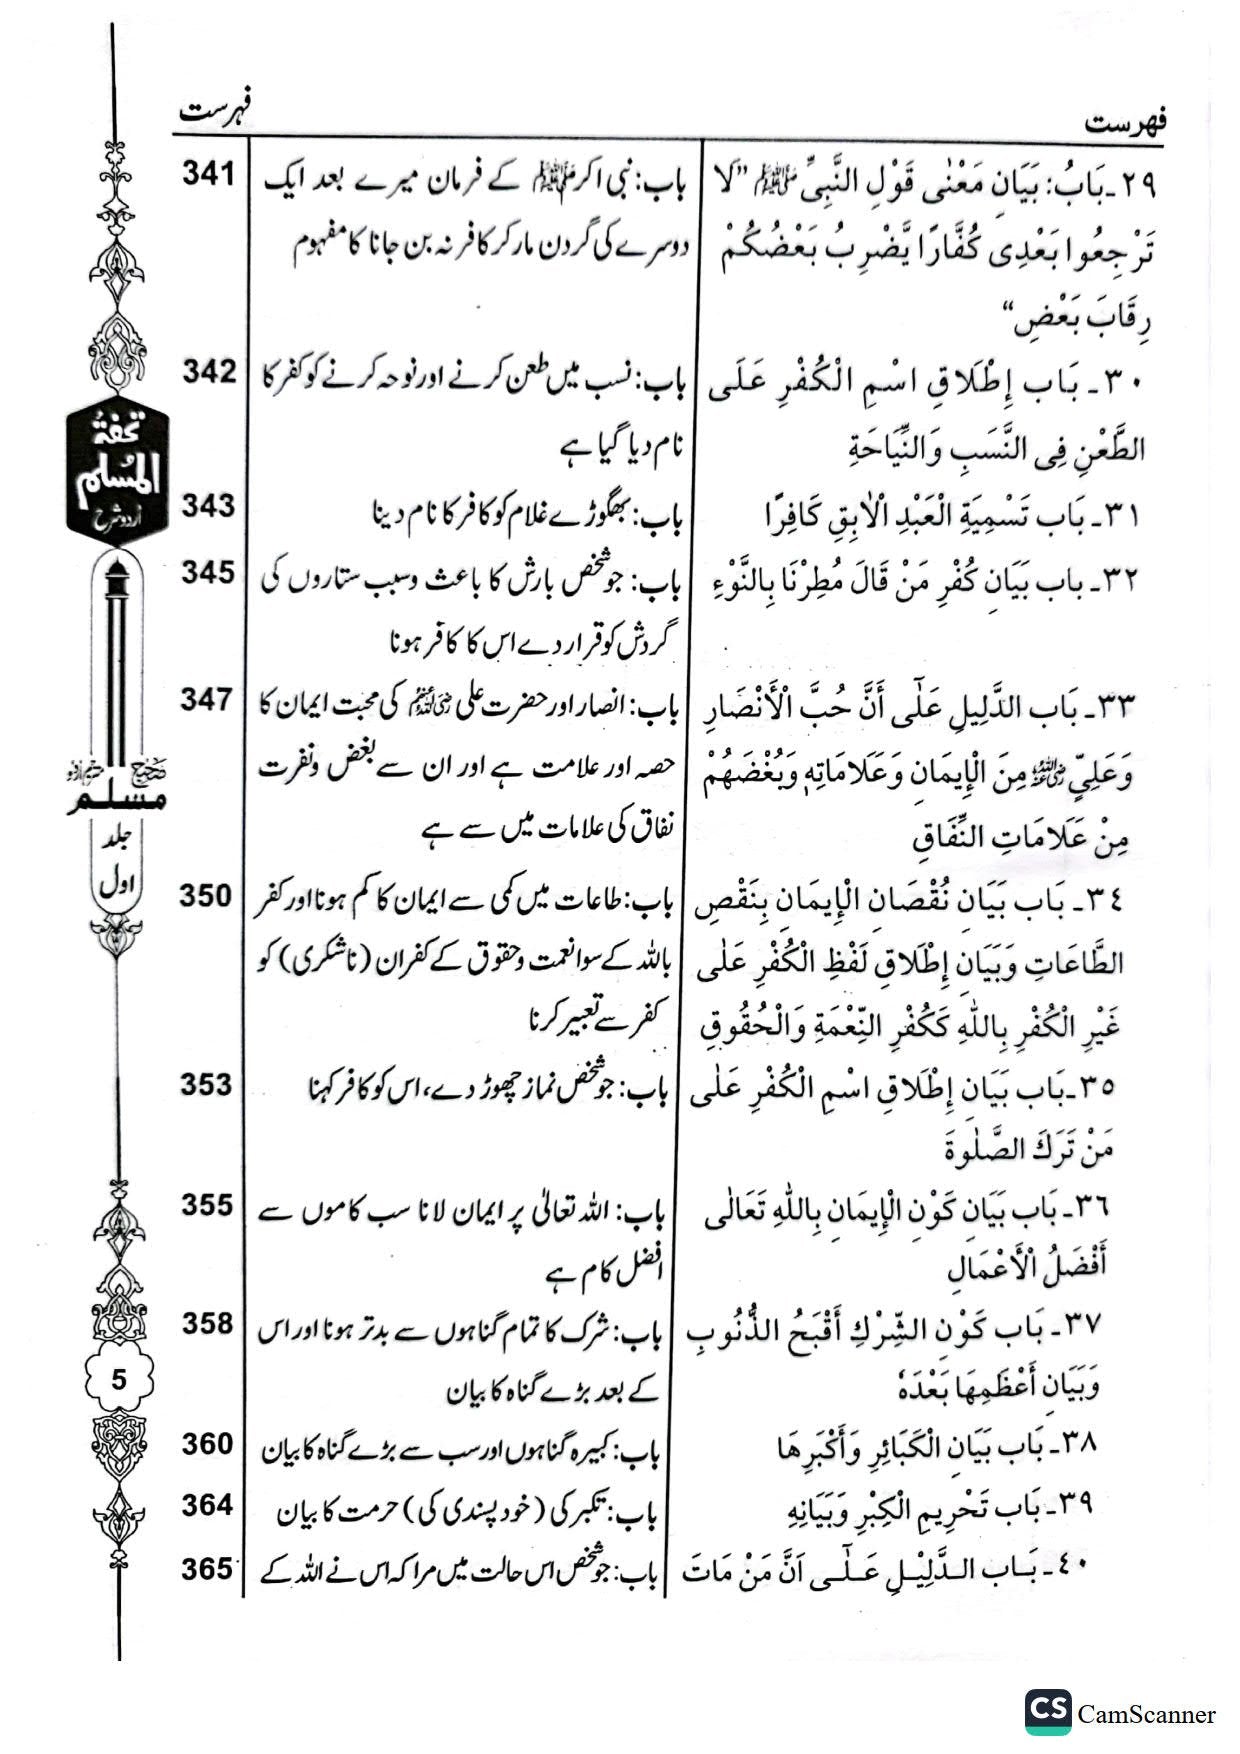 فهرست
فہرست
٢٩۔بَابُ: بَيَانِ مَعْنٰى قَوْلِ النَّبِيِّ ﷺ ”لَا
باب: نبی اکرم ﷺ کے فرمان میرے بعد ایک
341
تَرْجِعُوا بَعْدِى كُفَّارًا يَّضْرِبُ بَعْضُكُمْ
دوسرے کی گردن مار کر کافر نہ بن جانا کا مفہوم
رِقَابَ بَعْضٍ“
٣٠۔ بَاب إِطْلَاقِ اسْمِ الْكُفْرِ عَلَى
باب: نسب میں طعن کرنے اور نوحہ کرنے کو کفر کا
342
الطَّعْنِ فِى النَّسَبِ وَالنِّيَاحَةِ
نام دیا گیا ہے
٣١۔ بَاب تَسْمِيَةِ الْعَبْدِ الْاٰبِقِ كَافِرًا
باب: بھگوڑے غلام کو کافر کا نام دینا
343
٣٢۔ باب بَيَانِ كُفْرِ مَنْ قَالَ مُطِرْنَا بِالنَّوْءِ
باب: جو شخص بارش کا باعث وسبب ستاروں کی
345
گردش کو قرار دے اس کا کافر ہونا
٣٣۔ بَاب الدَّلِيلِ عَلٰٓى أَنَّ حُبَّ الْأَنْصَارِ
باب: انصار اور حضرت علی رضی اللہ عنہم کی محبت ایمان کا
347
وَعَلِيٍّ رضی اللہ عنہ مِنَ الْإِيمَانِ وَعَلَامَاتِهٖ وَبُغْضَهُمْ
حصہ اور علامت ہے اور ان سے بغض ونفرت
مِنْ عَلَامَاتِ النِّفَاقِ
نفاق کی علامات میں سے ہے
٣٤۔ بَاب بَيَانِ نُقْصَانِ الْإِيمَانِ بِنَقْصِ
باب: طاعات میں کمی سے ایمان کا کم ہونا اور کفر
350
الطَّاعَاتِ وَبَيَانِ إِطْلَاقِ لَفْظِ الْكُفْرِ عَلٰى
باللہ کے سوا نعمت وحقوق کے کفران (ناشکری) کو
غَيْرِ الْكُفْرِ بِاللّٰهِ كَكُفْرِ النِّعْمَةِ وَالْحُقُوقِ
کفر سے تعبیر کرنا
٣٥۔بَاب بَيَانِ إِطْلَاقِ اسْمِ الْكُفْرِ عَلٰى
باب: جو شخص نماز چھوڑ دے، اس کو کافر کہنا
353
مَنْ تَرَكَ الصَّلٰوةَ
٣٦۔ بَاب بَيَانِ كَوْنِ الْإِيمَانِ بِاللّٰهِ تَعَالٰى
باب: اللہ تعالیٰ پر ایمان لانا سب کاموں سے
355
أَفْضَلُ الْأَعْمَالِ
افضل کام ہے
٣٧۔ بَاب كَوْنِ الشِّرْكِ أَقْبَحُ الذُّنُوبِ
باب: شرک کا تمام گناہوں سے بدتر ہونا اور اس
358
وَبَيَانِ أَعْظَمِهَا بَعْدَهٗ
کے بعد بڑے گناہ کا بیان
٣٨۔ بَاب بَيَانِ الْكَبَائِرِ وَأَكْبَرِهَا
باب: کبیرہ گناہوں اور سب سے بڑے گناہ کا بیان
360
٣٩۔ بَاب تَحْرِيمِ الْكِبْرِ وَبَيَانِهِ
باب: تکبر کی (خود پسندی کی) حرمت کا بیان
364
٤٠۔ بَاب الدَّلِيْلِ عَلٰٓى اَنَّ مَنْ مَاتَ
باب: جو شخص اس حالت میں مرا کہ اس نے اللہ کے
365
تحفۃ
المُسلم
اردو شرح
صحیح
مسلم
جلد
اول
5
CS CamScanner